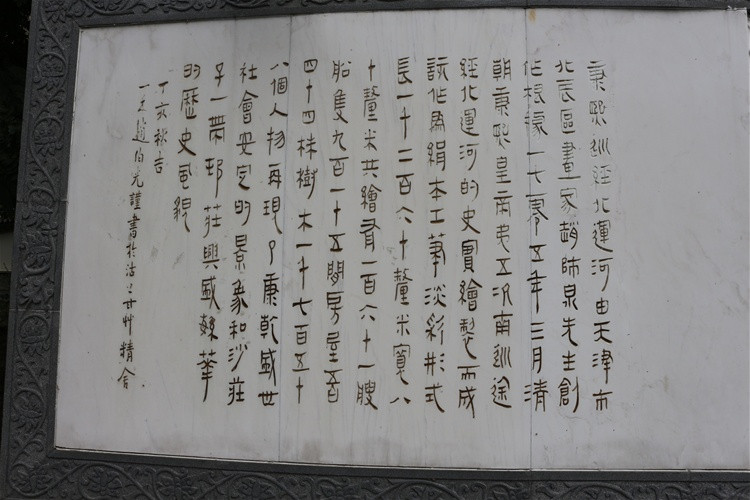 康熙巡經北運河由天津市
北辰區畫家趙師泉先生創
作根據一七零五年三月清
朝康熙皇帝第五次南巡途
經北運河的史實繪製而成
該作為絹本工筆淡彩形式
長一千二百六十釐米寬八
十釐米共繪有一百六十一艘
船隻九百一十五間房屋
四十四株樹木一千七百五十
八個人物再現了康乾盛世
社會安定的景象和沙莊
子一帶邨莊興盛繁華
的歷史風貌
丁亥秋吉
趙伯光謹書於沽上甘艸精舍